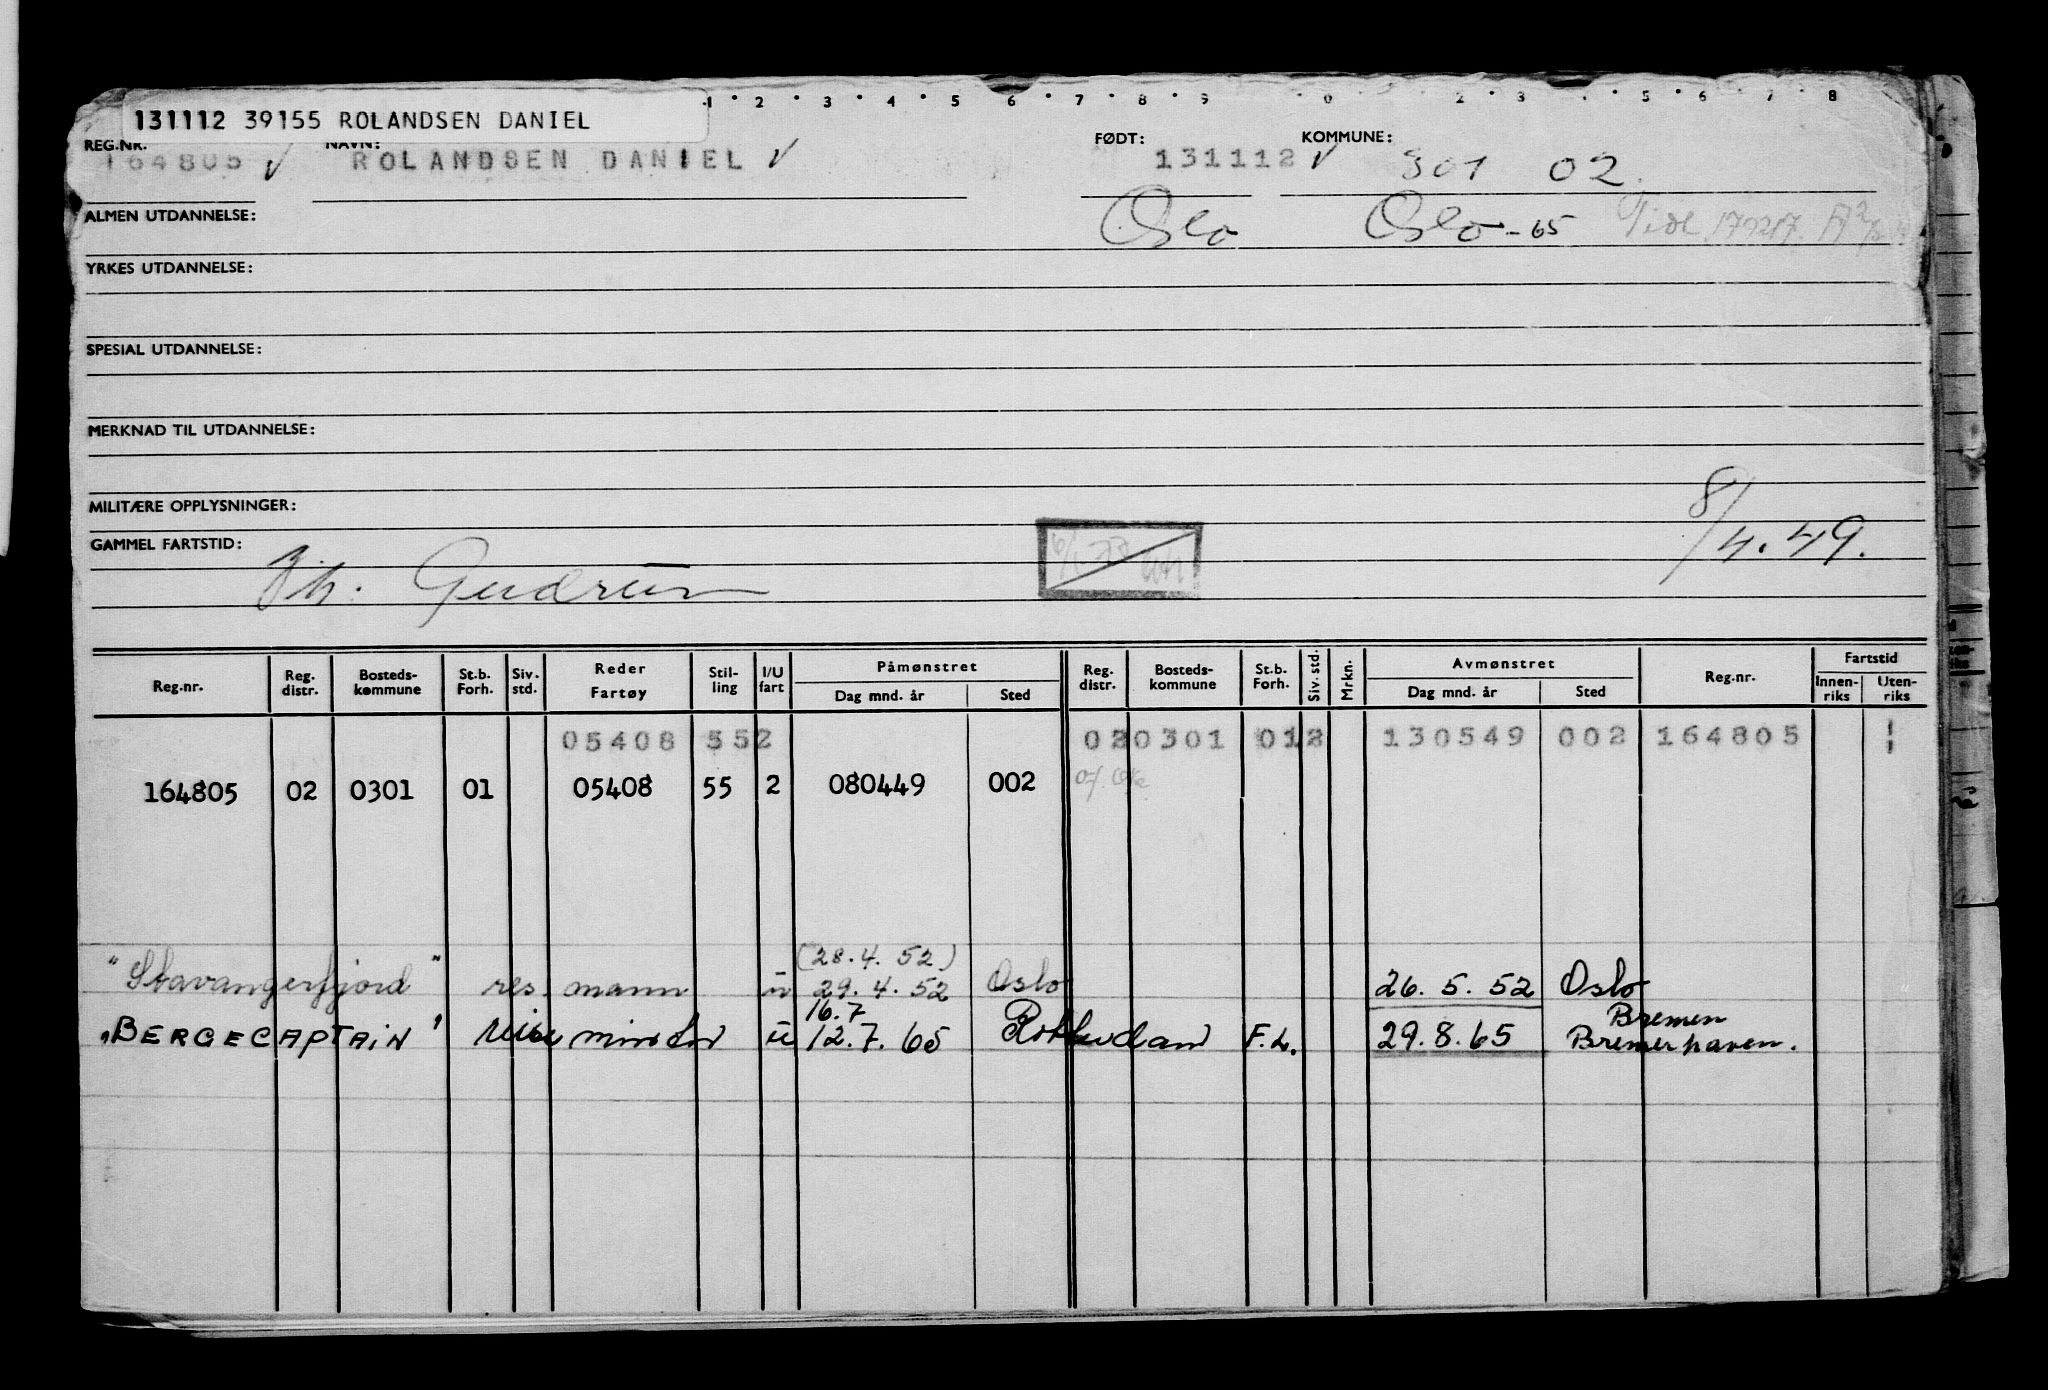 1 2 3 4 5 6 7 8 9 0 2 3 5 6 7 8
131112 39155 ROLANDSEN DANIEL
REG.NR. NAVN: FØDT: KOMMUNE:
164805 ✓ ROLANDSEN DANIEL ✓ 131112 ✓ 301 02
ALMEN UTDANNELSE: Oslo Oslo - 65 Tidl. 179217.
YRKES UTDANNELSE:
SPESIAL UTDANNELSE:
MERKNAD TIL UTDANNELSE:
MILITÆRE OPPLYSNINGER:
8/4.49.
GAMMEL FARTSTID:
Gudrun
Reg.nr. Reg. distr. Bosteds-kommune St.b. Forh. Siv. std. Reder Fartøy Stil-ling I/U fart Påmønstret Dag mnd. år Sted Reg. distr. Bosteds-kommune St.b. Forh. Siv. std. Mrkn. Avmønstret Dag mnd. år Sted Reg.nr. Fartstid Innen-riks Uten-riks
05408 552 020301 012 130549 002 164805 1
164805 02 0301 01 05408 55 2 080449 002
(28.4.52)
"Stavangerfjord" res. mann u 29.4.52 Oslo 26.5.52 Oslo
16.7 Bremen
"BERGECAPTAIN" u 12.7.65 Rotterdam F.L. 29.8.65 Bremerhaven.